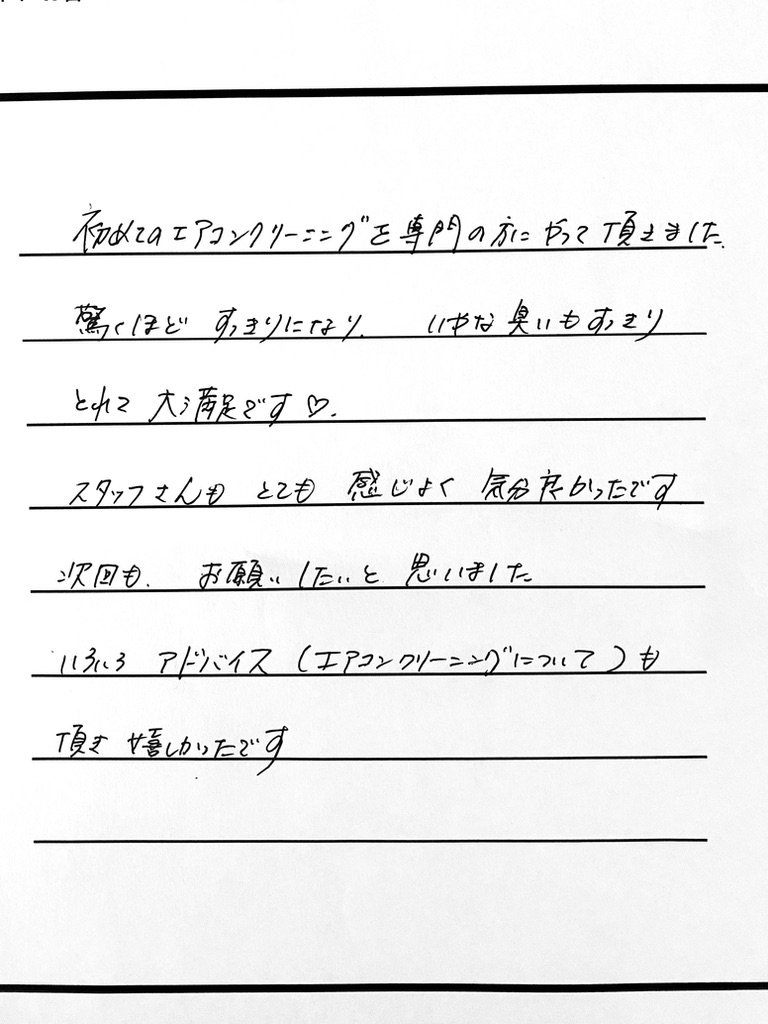 初めてのエアコンクリーニングを専門の方にやって頂きました.
驚くほど すっきりになり. いやな臭いもすっきり
とれて 大満足です♡.
スタッフさんも とても 感じよく 気分良かったです
次回も. お願いしたいと 思いました
いろいろ アドバイス (エアコンクリーニングについて)も
頂き 嬉しかったです